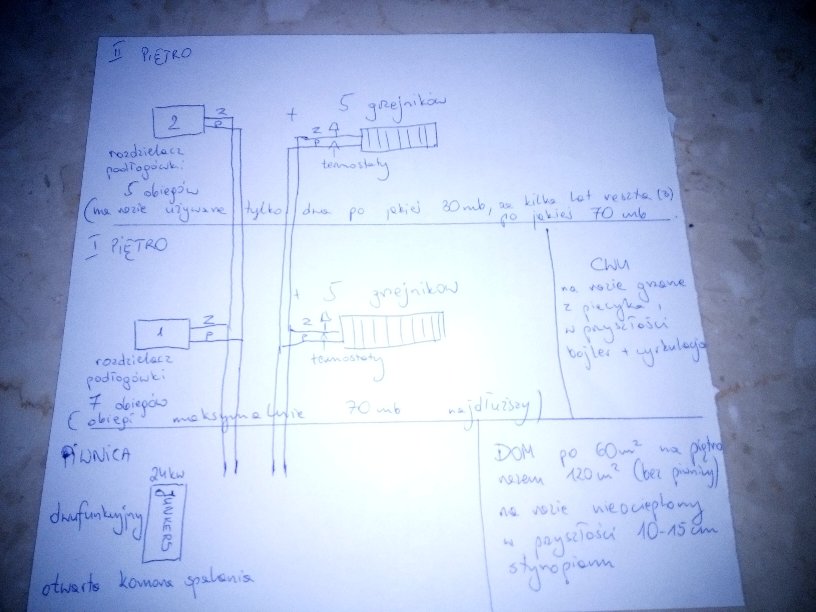 II PIĘTRO
+ 5 grzejników
2 Z P
Z P
termostaty
rozdzielacz
podłogówki:
5 obiegów
(na razie używane tylko dwa po jakieś 30mb, za kilka lat reszta (3)
po jakieś 70 mb
I PIĘTRO
+ 5 grzejników
1 Z P
Z P
termostaty
rozdzielacz
podłogówki
7 obiegów
(obiegi maksymalnie 70 mb najdłuższy)
CWU
na razie grzane
z piecyka,
w przyszłości
bojler + cyrkulacja
PIWNICA
24kW
dwufunkcyjny
JUNKERS
otwarta komora spalania
DOM po 60m² na piętro
razem 120m² (bez piwnicy)
na razie nieocieplony
w przyszłości 10-15cm
styropianu